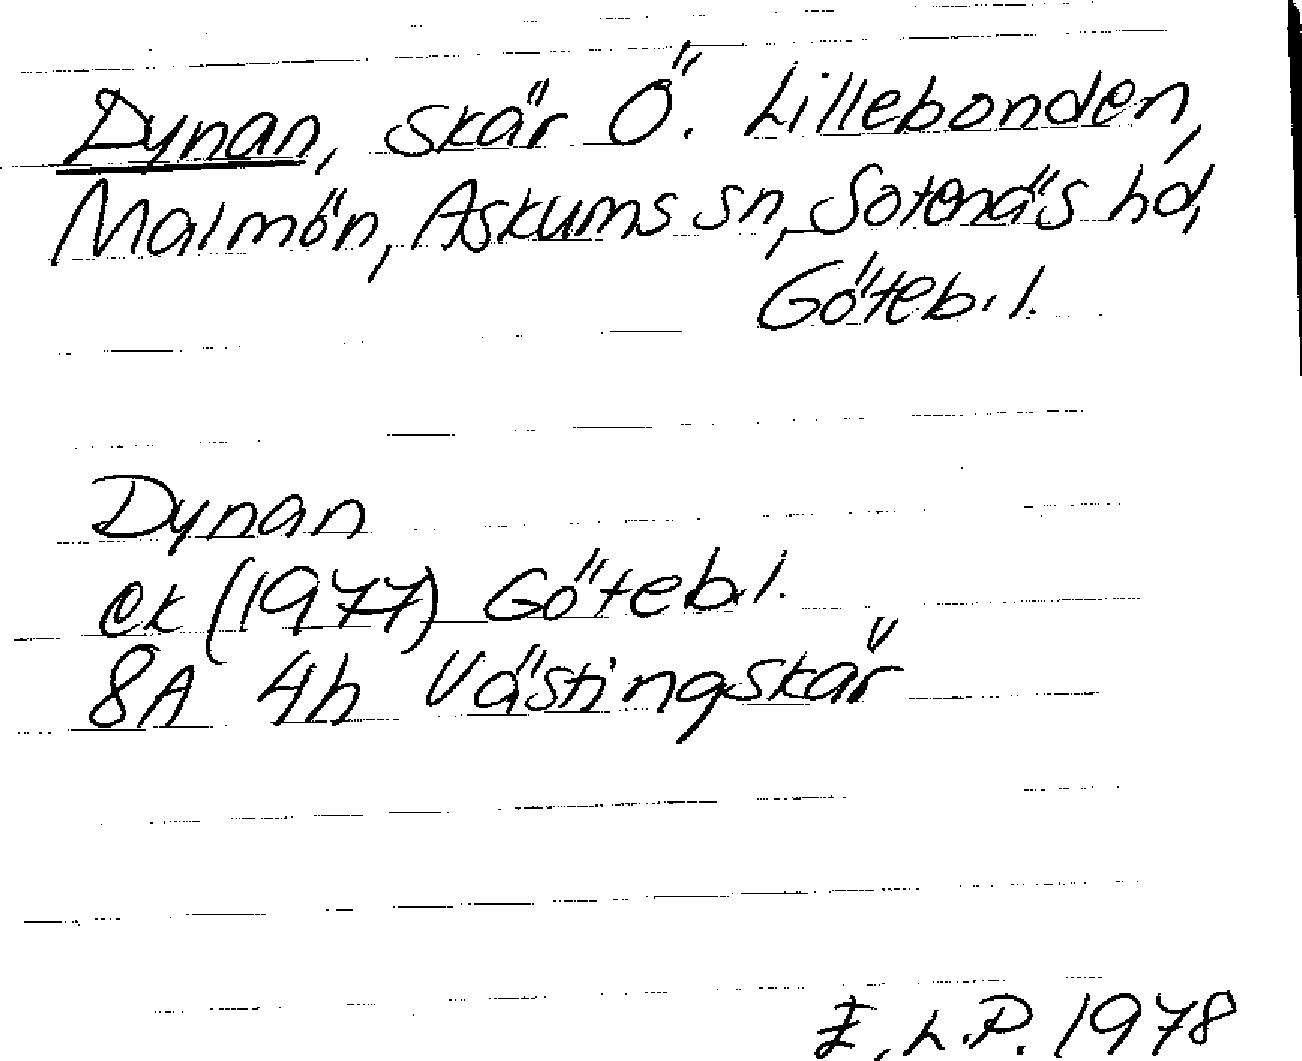 Dynan, skär Ö. Lillebonden,
Malmön, Askums sn, Sotenäs hd,
Göteb. l.
Dynan
ek (1977) Göteb. l.
8A 4h Västingskär
E. L. P. 1978